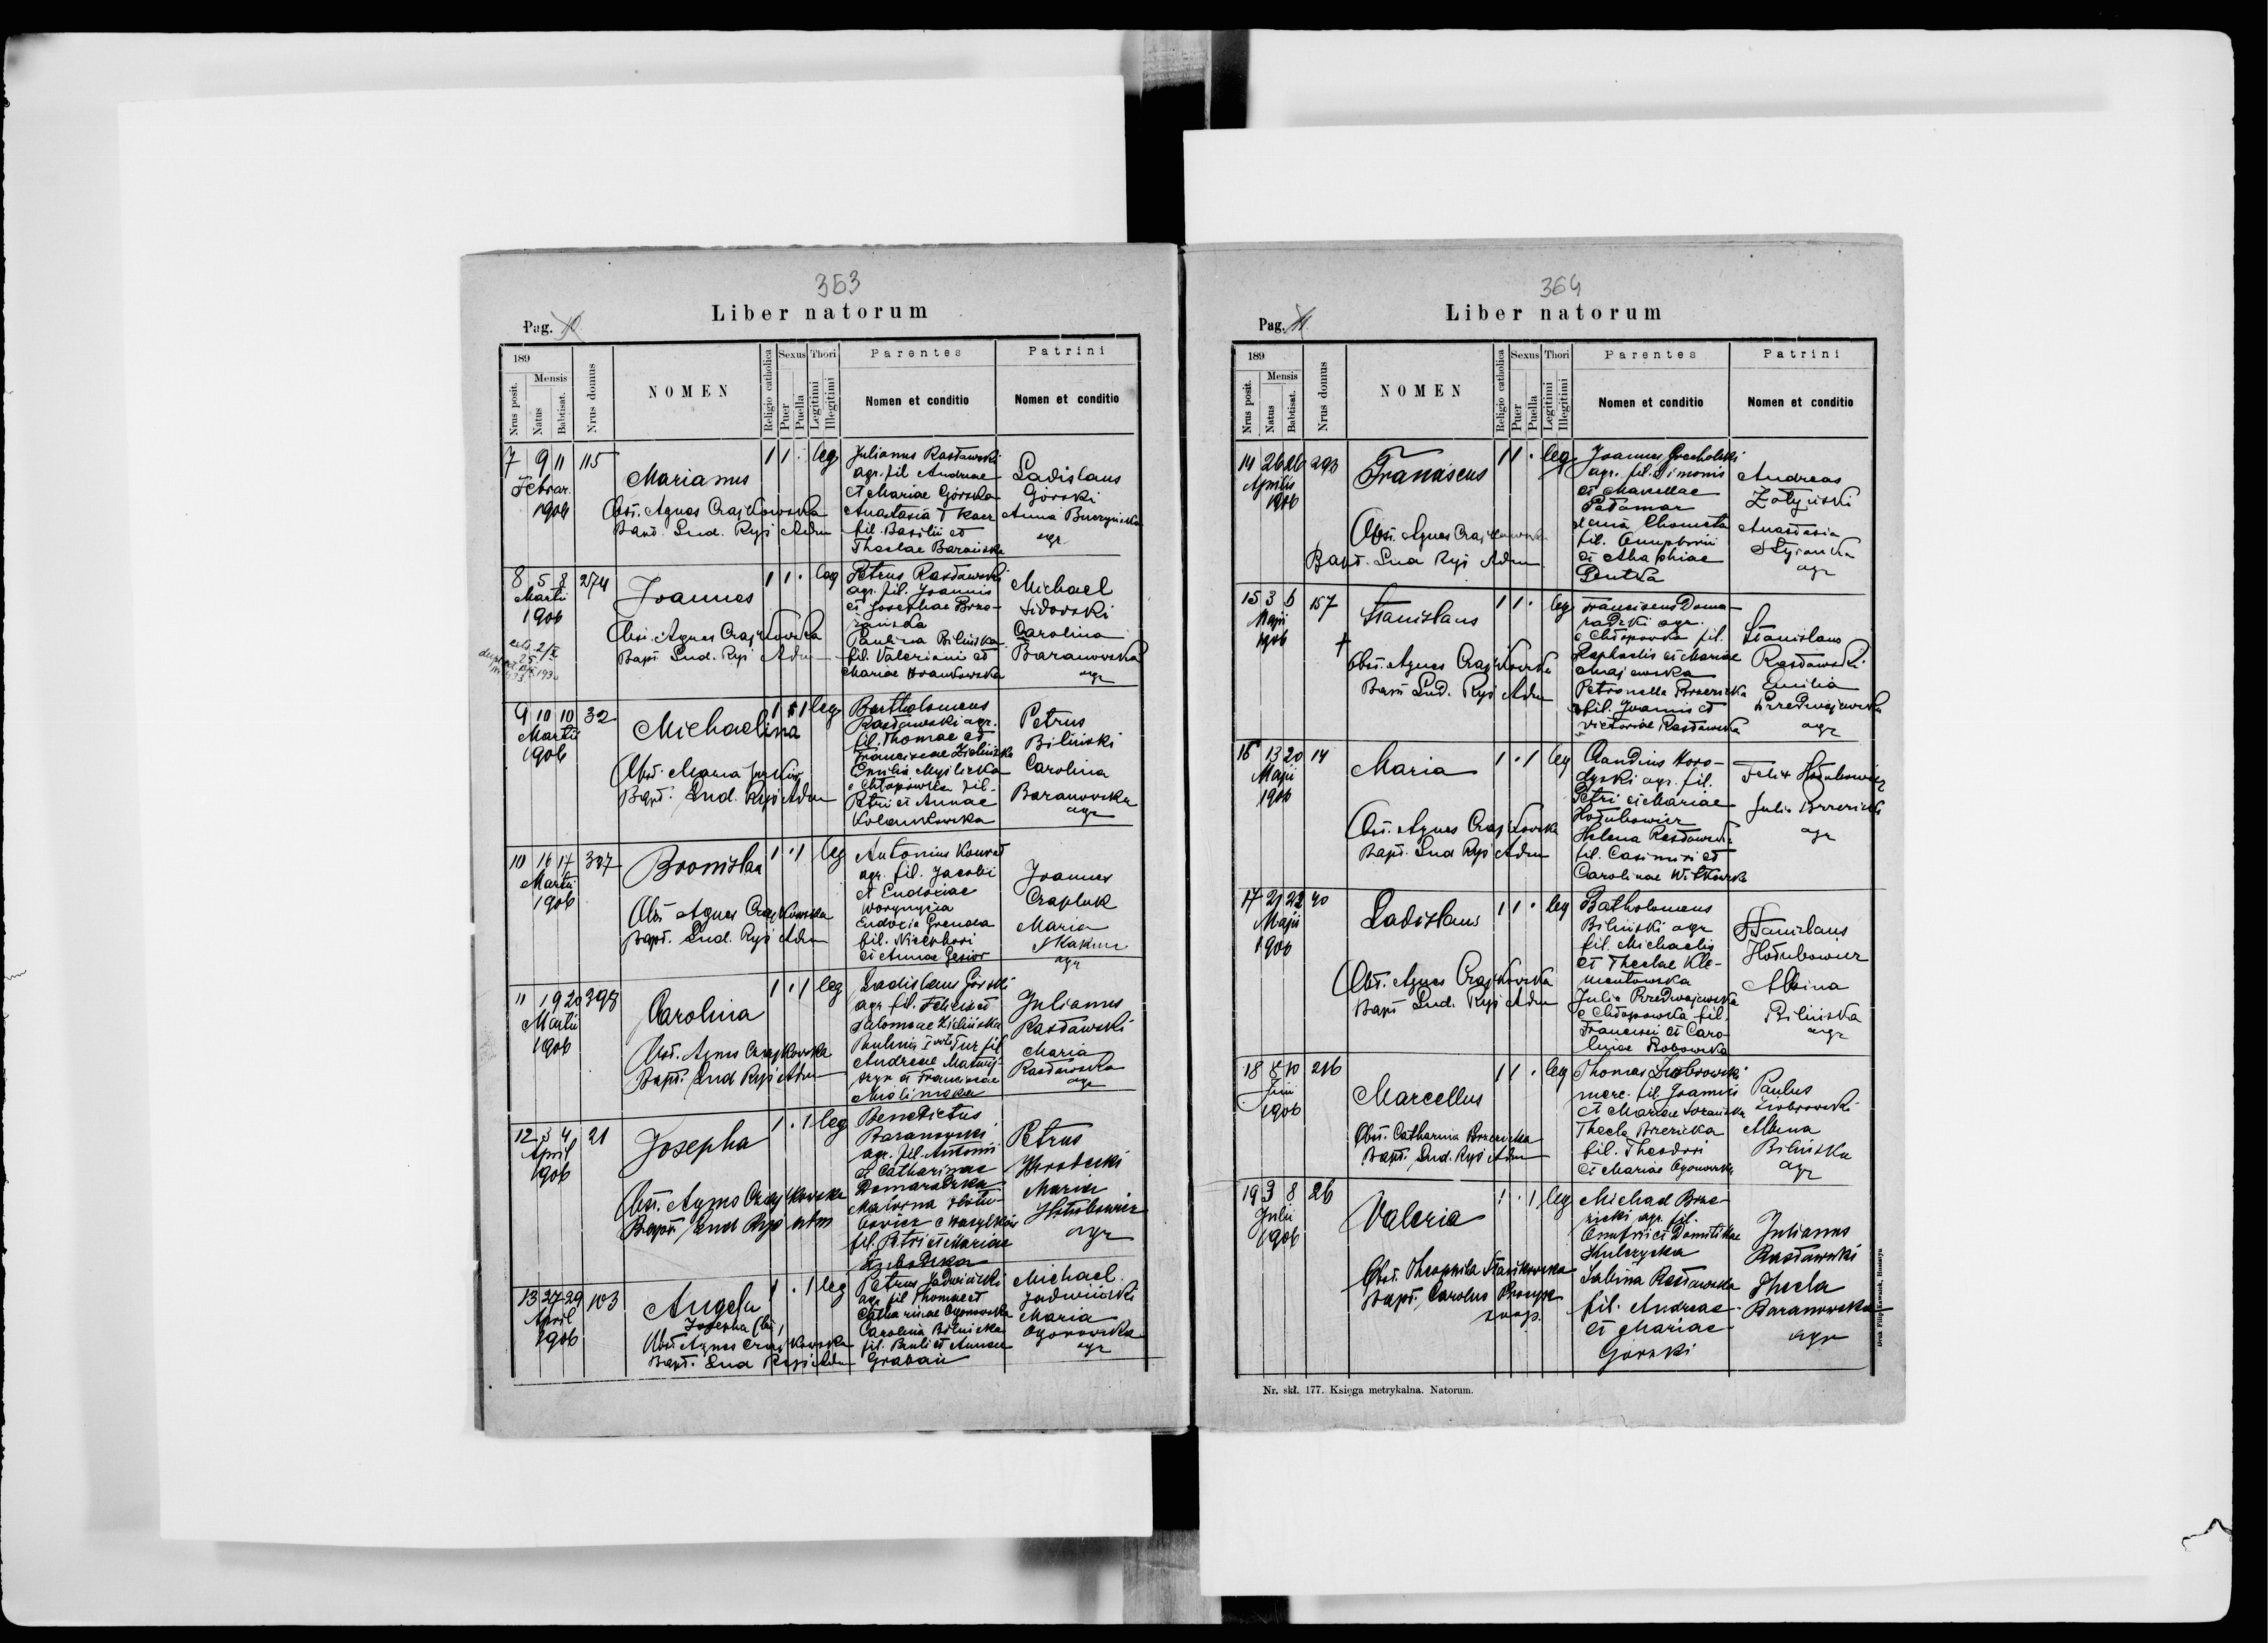 363
Liber natorum
Pag.
189
Mensis
Nrus posit.
Natus
Babtisat.
Nrus domus
NOMEN
Religio catholica
Sexus
Puer
Puella
Thori
Legitimi
Illegitimi
Parentes
Nomen et conditio
Patrini
Nomen et conditio
7 9 11 115
Februar.
1906
Marianus
Obst. Agnes Crajkowska
Bapt. Lud. Ryś Adm
1 1 · leg
Julianus Rasławski
agr. fil Andreae
et Mariae Górska
Anastasia Tkacz
fil. Basilii et
Theclae Barańska
Ladislaus
Górski
Anna Buczyńska
agr
8 5 8 274
Martii
1906
Joannes
Obst. Agnes Crajkowska
Bapt. Lud. Ryś Adm
1 1 · leg
Petrus Rasławski
agr. fil. Joannis
et Josephae Brze-
zańska
Paulina Bilińska
fil. Valeriani et
Mariae
Michael
Sidorski
Carolina
Baranowska
agr
9 10 10 32
Martii
1906
Michaelina
Obst. Maria
Bapt. Lud. Ryś Adm
1 · 1 leg
Bartholomeus
Rasławski agr.
fil. Thomae et
Franciscae Zielińska
Emilia Myślicka
e Chłopówka fil.
Petri et Annae
Kolankowska
Petrus
Biliński
Carolina
Baranowska
agr
10 16 17 327
Martii
1906
Bronislaa
Obst Agnes Crajkowska
Bapt. Lud. Ryś Adm
1 · 1 leg
Antonius Konrad
agr. fil. Jacobi
et Eudociae
Eudocia
fil. Nicephori
et Annae Gesior
Joannes
Czapluk
Maria
Skakun
agr
11 19 20 398
Martii
1906
Carolina
Obst. Agnes Crajkowska
Bapt. Lud Ryś Adm
1 · 1 leg
Ladislaus Górski
agr fil. Felicis et
Salomeae Zielińska
Paulina
Andreae
et Franciscae
Julianus
Rasławski
Maria
Rasławska
agr
12 3 4 21
April
1906
Josepha
Obst. Agnes Crajkowska
Bapt. Lud Ryś Adm
1 · 1 leg
Benedictus
Baranowski
agr. fil. Antonii
et Catharinae
Domaradzka
Malvina Hołu-
bowicz e Wasylków
fil. Petri et Mariae
Petrus
Horodecki
Maria
Hołubowicz
agr
13 27 29 103
April
1906
Angela
Josepha (bin)
Obst Agnes Crajkowska
Bapt. Lud Ryś Adm
1 · 1 leg
Petrus Jadwiński
agr fil Thomae et
Catharinae Ogonowska
Carolina Bilińska
fil. Pauli et Annae
Grabań
Michael
Jadwiński
Maria
Ogonowska
agr
364
Liber natorum
Pag.
189
Mensis
Nrus posit.
Natus
Babtisat.
Nrus domus
NOMEN
Religio catholica
Sexus
Puer
Puella
Thori
Legitimi
Illegitimi
Parentes
Nomen et conditio
Patrini
Nomen et conditio
14 26 26 293
Aprilis
1906
Franciscus
Obst. Agnes Crajkowska
Bapt. Lud Ryś Adm
1 1 · leg
Joannes Grocholski
agr. fil. Simonis
et Marcellae
Pałamar
Chometa
fil. Onuphrii
et Agaphiae
Dutka
Andreas
Załyński
Anastasia
Styranka
agr
15 3 6 157
Maji
1906
Stanislaus
Obst. Agnes Crajkowska
Bapt Lud. Ryś Adm
1 1 · leg
Franciscus Doma-
radzki agr.
e Chłopówka fil.
Raphaelis et Mariae
Majewska
Petronella Brzezicka
fil. Joannis et
Victoriae Rasławska
Stanislaus
Rasławski
Emilia
Przedwojewska
agr
16 13 20 14
Maji
1906
Maria
Obst. Agnes Crajkowska
Bapt. Lud Ryś Adm
1 · 1 leg
Claudius Horo-
dyski agr. fil.
Petri et Mariae
Hołubowicz
Helena Rasławska
fil. Casimiri et
Carolinae Witkowska
Felix Hołubowicz
Julia Brzezicki
agr
17 21 22 40
Maji
1906
Ladislaus
Obst. Agnes Crajkowska
Bapt Lud. Ryś Adm
1 1 · leg
Batholomeus
Biliński agr
fil. Michaelis
et Theclae Kle-
mentowska
Julia Przedwojewska
e Chłopówka fil.
Francisci et Caro-
linae Bobowska
Stanislaus
Hołubowicz
Albina
Bilińska
agr
18 8 10 216
Juni
1906
Marcellus
Obst. Catharina Brzezicka
Bapt. Lud. Ryś Adm
1 1 · leg
Thomas Ziobrowski
merc. fil Joannis
et Mariae
Thecla Brzezicka
fil. Theodori
et Mariae Ogonowska
Paulus
Ziobrowski
Albina
Bilińska
agr
19 3 8 26
Julii
1906
Valeria
Obst. Theophila Stasikowska
Bapt. Carolus Procyk
coop.
1 · 1 leg
Michael Brze-
zicki agr. fil.
Onufrii et Domitillae
Kulczycka
Sabina Rasławska
fil. Andreae
et Mariae
Górski
Julianus
Rasławski
Thecla
Baranowska
agr
Nr. skł. 177. Księga metrykalna. Natorum.